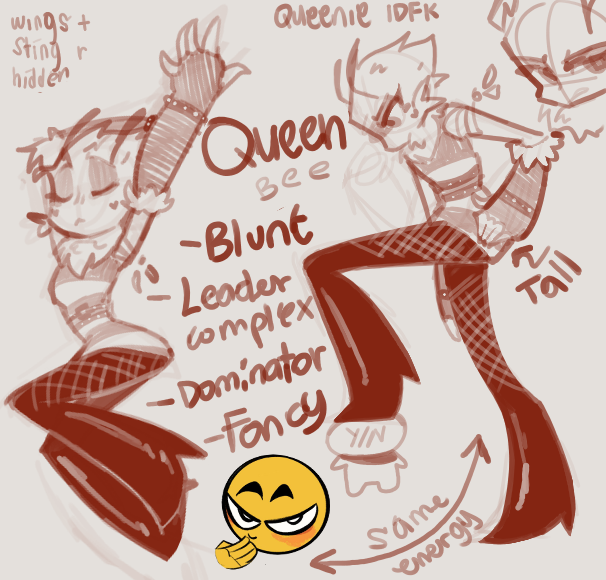 wings +
sting r
hidden
Queenie IDFK
Queen
Bee
- Blunt
- Leader
complex
- Dominator
- Fancy
Tall
YIN
same
energy